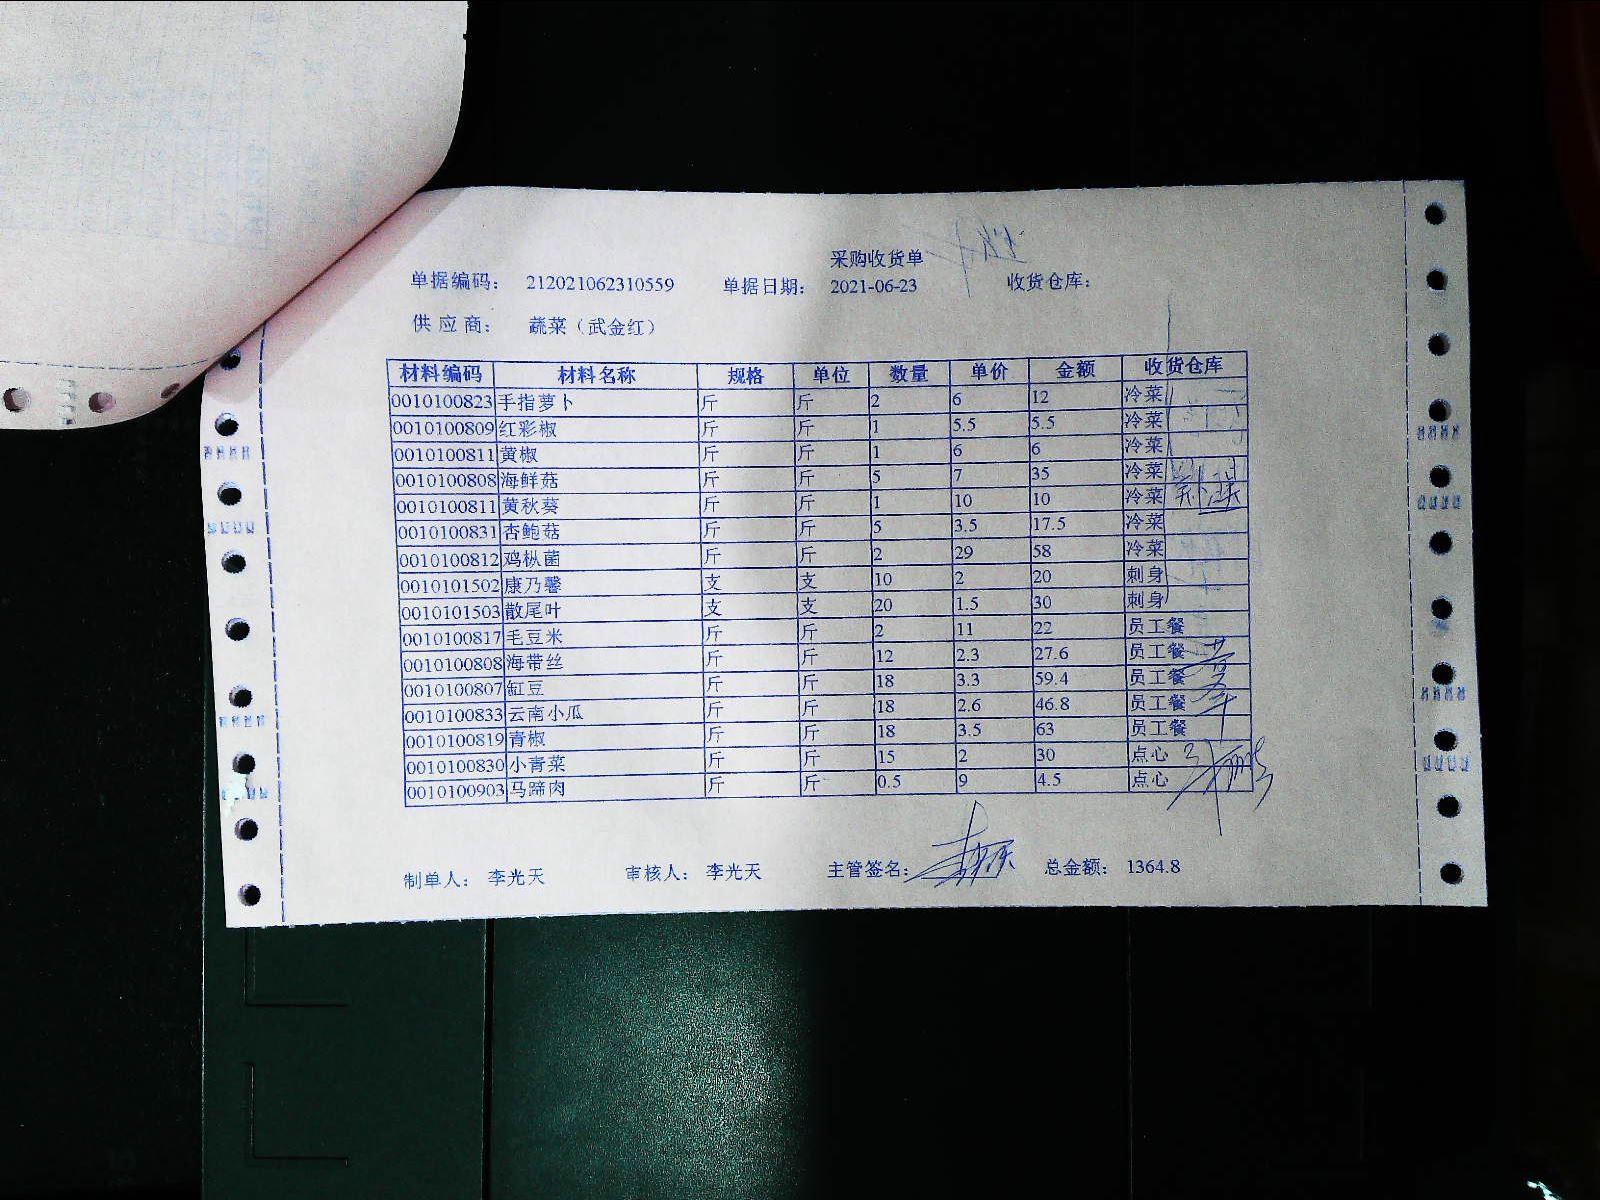 采购收货单
单据编码： 212021062310559 单据日期： 2021-06-23 收货仓库：
供应商： 蔬菜（武金红）
材料编码 材料名称 规格 单位 数量 单价 金额 收货仓库
0010100823 手指萝卜 斤 斤 2 6 12 冷菜
0010100809 红彩椒 斤 斤 1 5.5 5.5 冷菜
0010100811 黄椒 斤 斤 1 6 6 冷菜
0010100808 海鲜菇 斤 斤 5 7 35 冷菜
0010100811 黄秋葵 斤 斤 1 10 10 冷菜
0010100831 杏鲍菇 斤 斤 5 3.5 17.5 冷菜
0010100812 鸡枞菌 斤 斤 2 29 58 冷菜
0010101502 康乃馨 支 支 10 2 20 刺身
0010101503 散尾叶 支 支 20 1.5 30 刺身
0010100817 毛豆米 斤 斤 2 11 22 员工餐
0010100808 海带丝 斤 斤 12 2.3 27.6 员工餐
0010100807 缸豆 斤 斤 18 3.3 59.4 员工餐
0010100833 云南小瓜 斤 斤 18 2.6 46.8 员工餐
0010100819 青椒 斤 斤 18 3.5 63 员工餐
0010100830 小青菜 斤 斤 15 2 30 点心
0010100903 马蹄肉 斤 斤 0.5 9 4.5 点心
制单人： 李光天 审核人： 李光天 主管签名： 总金额： 1364.8